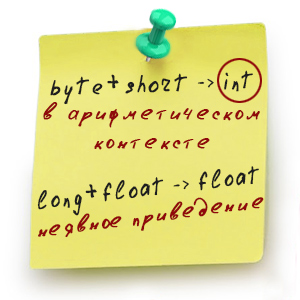 byte+short -> int
в арифметическом
контексте
long+float -> float
неявное приведение